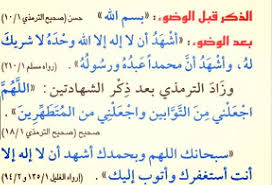 الذكر قبل الوضوء: «بسم الله» حسن (صحيح الترمذي ١٠/١)
بعد الوضوء: «أَشْهَدُ أَن لا إله إلا الله وَحْدَهُ لا شريكَ
لهُ، وأَشْهَدُ أَنَّ محمداً عبدُه ورسُولُهُ» (رواه مسلم ٢١٠/١)
وزَادَ الترمذي بعد ذِكْرِ الشهادتين: «اللَّهُمَّ
اجْعَلْنِي مِنَ التَّوَّابينَ واجْعَلْنِي مِنَ المُتَطَهِّرِينَ».
(صحيح الترمذي ١٨/١)
«سبحانك اللهم وبحمدك أشهد أن لا إله إلا
أنت أستغفرك وأتوب إليك» (إرواء الغليل ١٣٥/١ و٩٤/٢)